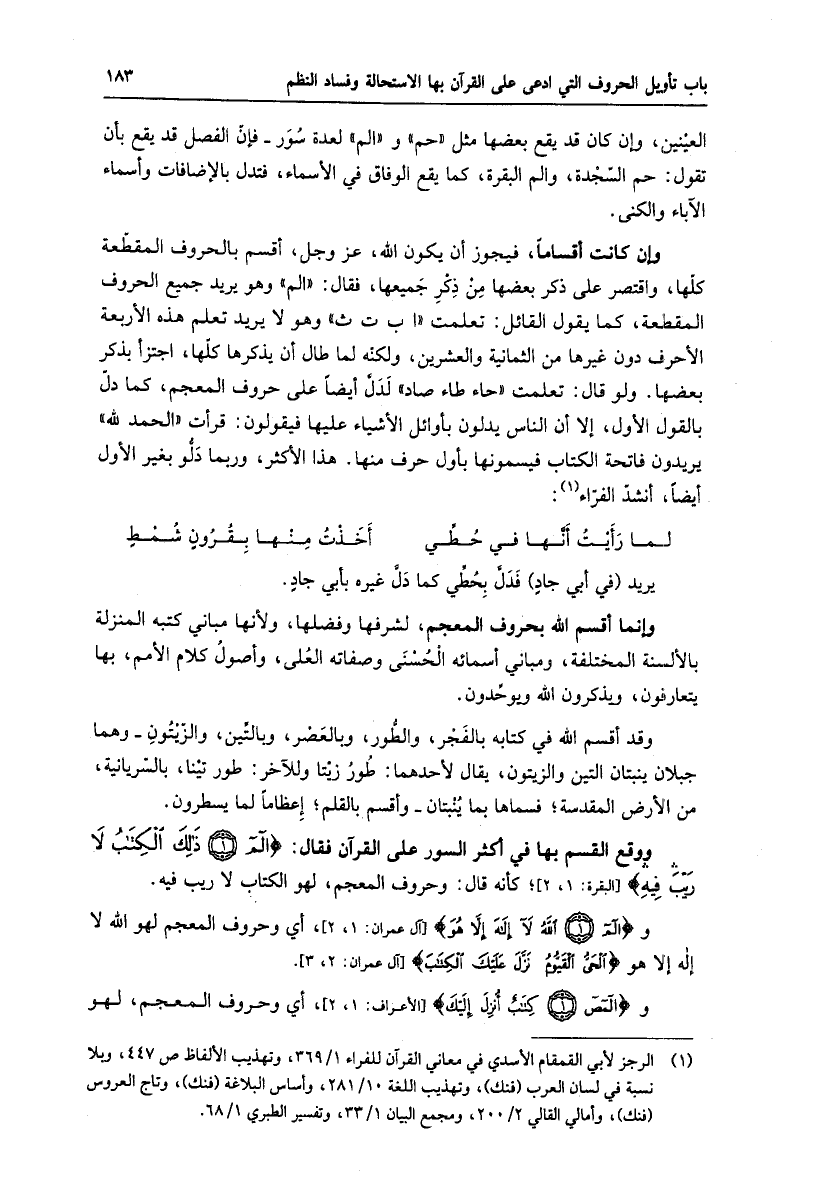 باب تأويل الحروف التي ادعى على القرآن بها الاستحالة وفساد النظم ١٨٣
العيْنين، وإن كان قد يقع بعضها مثل «حم» و «الم» لعدة سُوَر ـ فإنّ الفصل قد يقع بأن
تقول: حم السّجْدة، والم البقرة، كما يقع الوفاق في الأسماء، فتدل بالإضافات وأسماء
الآباء والكنى.
وإن كانت أقساماً، فيجوز أن يكون الله، عز وجل، أقسم بالحروف المقطّعة
كلّها، واقتصر على ذكر بعضها مِنْ ذِكْرِ جَميعها، فقال: «الم» وهو يريد جميع الحروف
المقطعة، كما يقول القائل: تعلمت «ا ب ت ث» وهو لا يريد تعلم هذه الأربعة
الأحرف دون غيرها من الثمانية والعشرين، ولكنّه لما طال أن يذكرها كلّها، اجتزأ بذكر
بعضها. ولو قال: تعلمت «حاء طاء صاد» لَدَلَّ أيضاً على حروف المعجم، كما دلّ
بالقول الأول، إلا أن الناس يدلون بأوائل الأشياء عليها فيقولون: قرأت «الحمد لله»
يريدون فاتحة الكتاب فيسمونها بأول حرف منها. هذا الأكثر، وربما دَلُّو بغير الأول
أيضاً، أنشدّ الفرّاء(١):
لـمـا رَأَيْـتُ أَنَّـهـا فـي حُـطِّـي أَخَـذْتُ مِـنْـهـا بِـقُـرُونٍ شُـمْـطٍ
يريد (في أبي جادٍ) فَدَلَّ بِحُطِّي كما دَلَّ غيره بأبي جادٍ.
وإنما أقسم الله بحروف المعجم، لشرفها وفضلها، ولأنها مباني كتبه المنزلة
بالألسنة المختلفة، ومباني أسمائه الْحُسْنَى وصفاته العُلى، وأصولُ كلام الأمم، بها
يتعارفون، ويذكرون الله ويوحِّدون.
وقد أقسم الله في كتابه بالفَجْر، والطُور، وبالعَصْر، وبالتِّين، والزّيْتُونِ ـ وهما
جبلان ينبتان التين والزيتون، يقال لأحدهما: طُورُ زيْتا وللآخر: طور تيْنا، بالسّريانية،
من الأرض المقدسة؛ فسماها بما يُنْبتان ـ وأقسم بالقلم؛ إعظاماً لما يسطرون.
ووقع القسم بها في أكثر السور على القرآن فقال: ﴿الٓمٓ ۝١ ذَٰلِكَ ٱلْكِتَٰبُ لَا
رَيْبَ فِيهِ﴾ [البقرة: ١، ٢]؛ كأنه قال: وحروف المعجم، لهو الكتاب لا ريب فيه.
و ﴿الٓمٓ ۝١ ٱللَّهُ لَآ إِلَٰهَ إِلَّا هُوَ﴾ [آل عمران: ١، ٢]، أي وحروف المعجم لهو الله لا
إله إلا هو ﴿ٱلْحَىُّ ٱلْقَيُّومُ نَزَّلَ عَلَيْكَ ٱلْكِتَٰبَ﴾ [آل عمران: ٢، ٣].
و ﴿الٓمٓصٓ ۝١ كِتَٰبٌ أُنزِلَ إِلَيْكَ﴾ [الأعراف: ١، ٢]، أي وحروف المعجم، لهو
(١) الرجز لأبي القمقام الأسدي في معاني القرآن للفراء ٣٦٩/١، وتهذيب الألفاظ ص ٤٤٧، وبلا
نسبة في لسان العرب (فنك)، وتهذيب اللغة ٢٨١/١٠، وأساس البلاغة (فنك)، وتاج العروس
(فنك)، وأمالي القالي ٢٠٠/٢، ومجمع البيان ٣٣/١، وتفسير الطبري ٦٨/١.